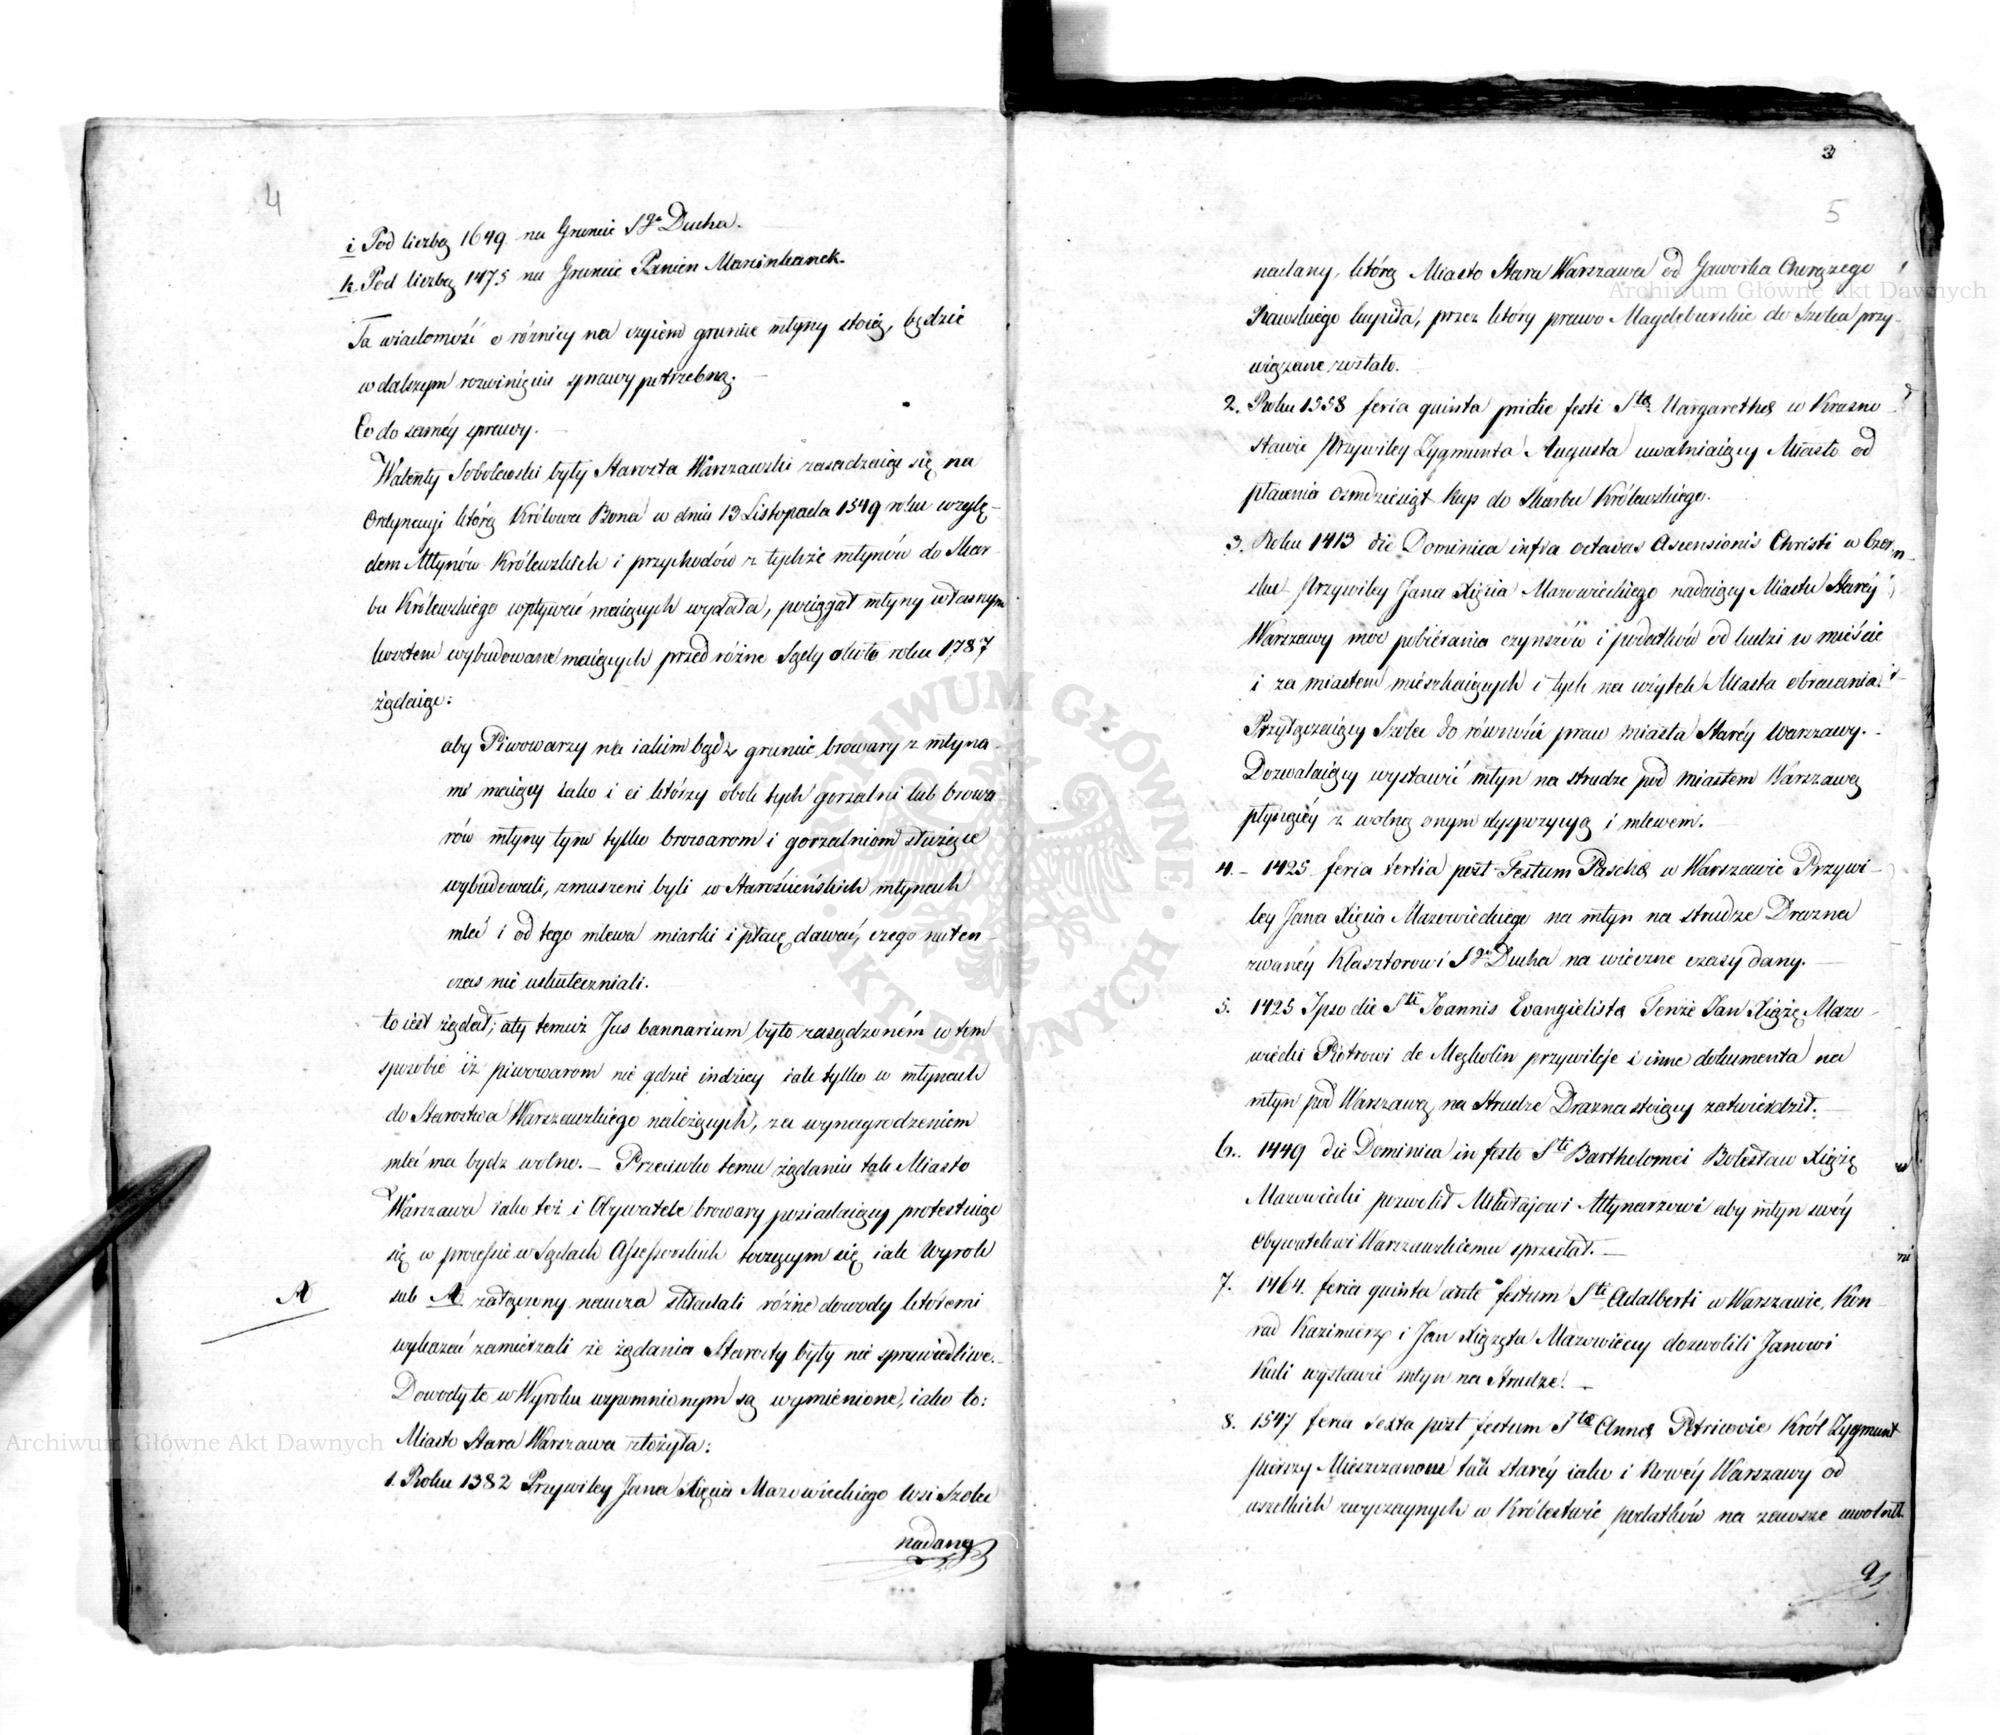 4
i Pod liczbą 1649 na Gruncie Sgo Ducha.
k. Pod liczbą 1475 na Gruncie Panien Marcinkanek.
Ta wiadomość o różnicy na czyiem gruncie młyny stoią, będzie
w dalszym rozwinięciu sprawy potrzebną.
Co do saméy sprawy.
Walenty Sobolewski były Starosta Warszawski zasadzaiąc się na
Ordynacyi którą Królowa Bona w dniu 13 Listopada 1549 roku wzglę-
dem Młynów Królewskich i przychodów z tychże młynów do Skar-
bu Królewskiego wpływać maiących wydała, pociągał młyny własnym
kosztem wybudowane maiących przed różne Sądy około roku 1787
żądaiąc:
aby Piwowarzy na iakim bądź gruncie browary z młyna-
mi maiący iako i ci którzy obok tych gorzalni lub browa-
rów młyny tym tylko browarom i gorzalniom służące
wybudowali, zmuszeni byli w Starościeńskich młynach
mleć i od tego mlewa miarki i płacę dawać, czego naten-
czas nie uskuteczniali.
to iest żądał; aby temuż Jus bannarium było zasądzoném w tem
sposobie iż piwowarom nie gdzie indziey iak tylko w młynach
do Starostwa Warszawskiego należących, za wynagrodzeniem
mleć ma bydź wolno. – Przeciwko temu żądaniu tak Miasto
Warszawa iako też i Obywatele browary posiadaiący protestuiąc
się w processie w Sądach Assessorskich toczącym się iak Wyrok
A
sub A załączony naucza składali różne dowody któremi
wykazać zamierzali że żądania Starosty były nie sprawiedliwe.
Dowody te w Wyroku wspomnionym są wymienione, iako to:
Miasto Stara Warszawa złożyła:
1. Roku 1382 Przywiley Jana Xięcia Mazowieckiego wsi Szolec
nadany
3
5
nadany, którą Miasto Stara Warszawa od Gaworka Chorążego
Rawskiego kupiła, przez który prawo Magdeburskie do Szolca przy-
wiązane zostało.
2. Roku 1558 feria quinta pridie festi Stæ Margarethæ w Krasno-
stawie Przywiley Zygmunta Augusta uwalniaiący Miasto od
płacenia ośmdziesiąt kop do Skarbu Królewskiego.
3. Roku 1413 die Dominica infra octavas Ascensionis Christi w Czer-
sku Przywiley Jana Xięcia Mazowieckiego nadaiący Miastu Staréy
Warszawy moc pobiérania czynszów i podatków od ludzi w mieście
i za miastem mieszkaiących i tych na użytek Miasta obracania.
Przyłączaiący Szolec do równości praw miasta Staréy Warszawy.
Dozwalaiący wystawić młyn na strudze pod miastem Warszawą
płynącéy z wolną onym dyspozycyą i mlewem.
4. – 1425 feria tertia post Festum Paschæ w Warszawie Przywi-
ley Jana Xięcia Mazowieckiego na młyn na strudze Drazna
zwanéy Klasztorowi Sgo Ducha na wieczne czasy dany.
5. 1425 Ipso die Sti Joannis Evangielista Tenże Jan Xiążę Mazo-
wiecki Piotrowi de przywileje i inne dokumenta na
młyn pod Warszawą na Strudze Drazna stoiący zatwierdził.
6. 1449 die Dominica in festo Sti Bartholomei Bolesław Xiążę
Mazowiecki pozwolił Mikołajowi Młynarzowi aby młyn swóy
Obywatelowi Warszawskiemu sprzedał.
7. 1464. feria quinta ante festum Sti Adalberti w Warszawie, Kon-
rad Kazimierz i Jan Xiążęta Mazowieccy dozwolili Janowi
Kuli wystawić młyn na Strudze.
8. 1547 feria sexta post festum Stæ Annæ Petricovie Król Zygmunt
pierszy Mieszczanom tak staréy iako i Nowéy Warszawy od
wszelkich zwyczaynych w Królestwie podatków na zawsze uwolnił.
9
Archiwum Główne Akt Dawnych
Archiwum Główne Akt Dawnych
ARCHIWUM GŁÓWNE • AKT DAWNYCH •